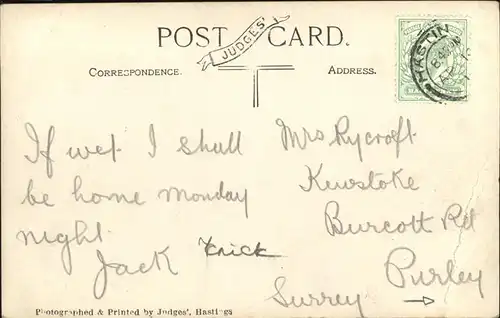 POST CARD.
JUDGES'
CORRESPONDENCE.
ADDRESS.
HASTIN
If wet I shall
be home Monday
night
Jack
Mrs Rycroft
Kewstoke
Burcott Rd
Purley
Surrey →
Photographed & Printed by Judges', Hastings